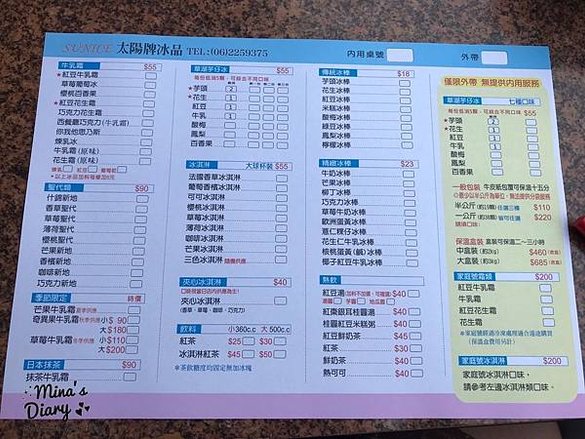 SUNICE 太陽牌冰品 TEL:(06)2259375
內用桌號
外帶
牛乳霜 $55
★紅豆牛乳霜
草莓葡萄冰
櫻桃百香果
★紅豆花生霜
巧克力花生霜
西餐廳巧克力(牛乳霜)
你我他思乃斯
煉乳冰
牛乳霜(原味)
花生霜(原味)
聖代類 $90
什錦新地
香草聖代
草莓聖代
薄荷聖代
櫻桃聖代
芒果新地
香檳新地
咖啡新地
巧克新地
季節限定 特價
芒果牛乳霜
奇異果牛乳霜 小$ 90
大$180
草莓牛乳霜 小$110
大$200
日本抹茶 $90
抹茶牛乳霜
草湖芋仔冰 $55
每份組合5顆，可綜合不同口味
★芋頭 2
★花生 1
紅豆 1
牛乳 1
酸梅
鳳梨
百香果
冰淇淋 大球杯裝 $55
法國香草冰淇淋
葡萄香檳冰淇淋
可可冰淇淋
櫻桃冰淇淋
草莓冰淇淋
薄荷冰淇淋
咖啡冰淇淋
芒果冰淇淋
三色冰淇淋 隨機供應
夾心冰淇淋 $40
夾心冰淇淋
(香草．草莓．咖啡．巧克力)
飲料 小360c.c 大 500c.c
紅茶 $25 $30
冰淇淋紅茶 $45 $50
★茶飲糖度均固定無加冰塊
傳統冰棒 $18
芋頭冰棒
花生冰棒
紅豆冰棒
米糕冰棒
牛奶冰棒
酸梅冰棒
鳳梨冰棒
檸檬冰棒
精緻冰棒 $23
牛奶冰棒
芒果冰棒
柳丁冰棒
巧克力冰棒
草莓牛奶冰棒
歐洲蛋黃冰棒
薄荷冰棒
花生仁牛乳冰棒
核桃蛋黃(鹹)冰棒
椰子紅豆牛乳冰棒
熱飲
紅豆湯 $40
紅棗銀耳桂圓湯 $40
桂圓紅豆米糕粥 $40
紅豆鮮奶茶 $45
紅茶 $30
鮮奶茶 $40
熱可可 $40
僅限外帶 無提供內用服務
草湖芋仔冰 七種口味
每份組合5顆，可綜合不同口味 $55
★芋頭 2
★花生 1
紅豆 1
牛乳 1
酸梅
鳳梨
百香果
一般包裝 牛皮紙包覆可保溫十五分
半公斤 $110
一公斤 $220
保溫盒裝 盒裝可保溫二～三小時
中盒裝 $460
大盒裝 $685
家庭號霜類 $200
紅豆牛乳霜
牛乳霜
紅豆花生霜
花生霜
家庭號冰淇淋 $200
家庭號冰淇淋口味，
請參考左邊冰淇淋類口味。
Mina's
Diary